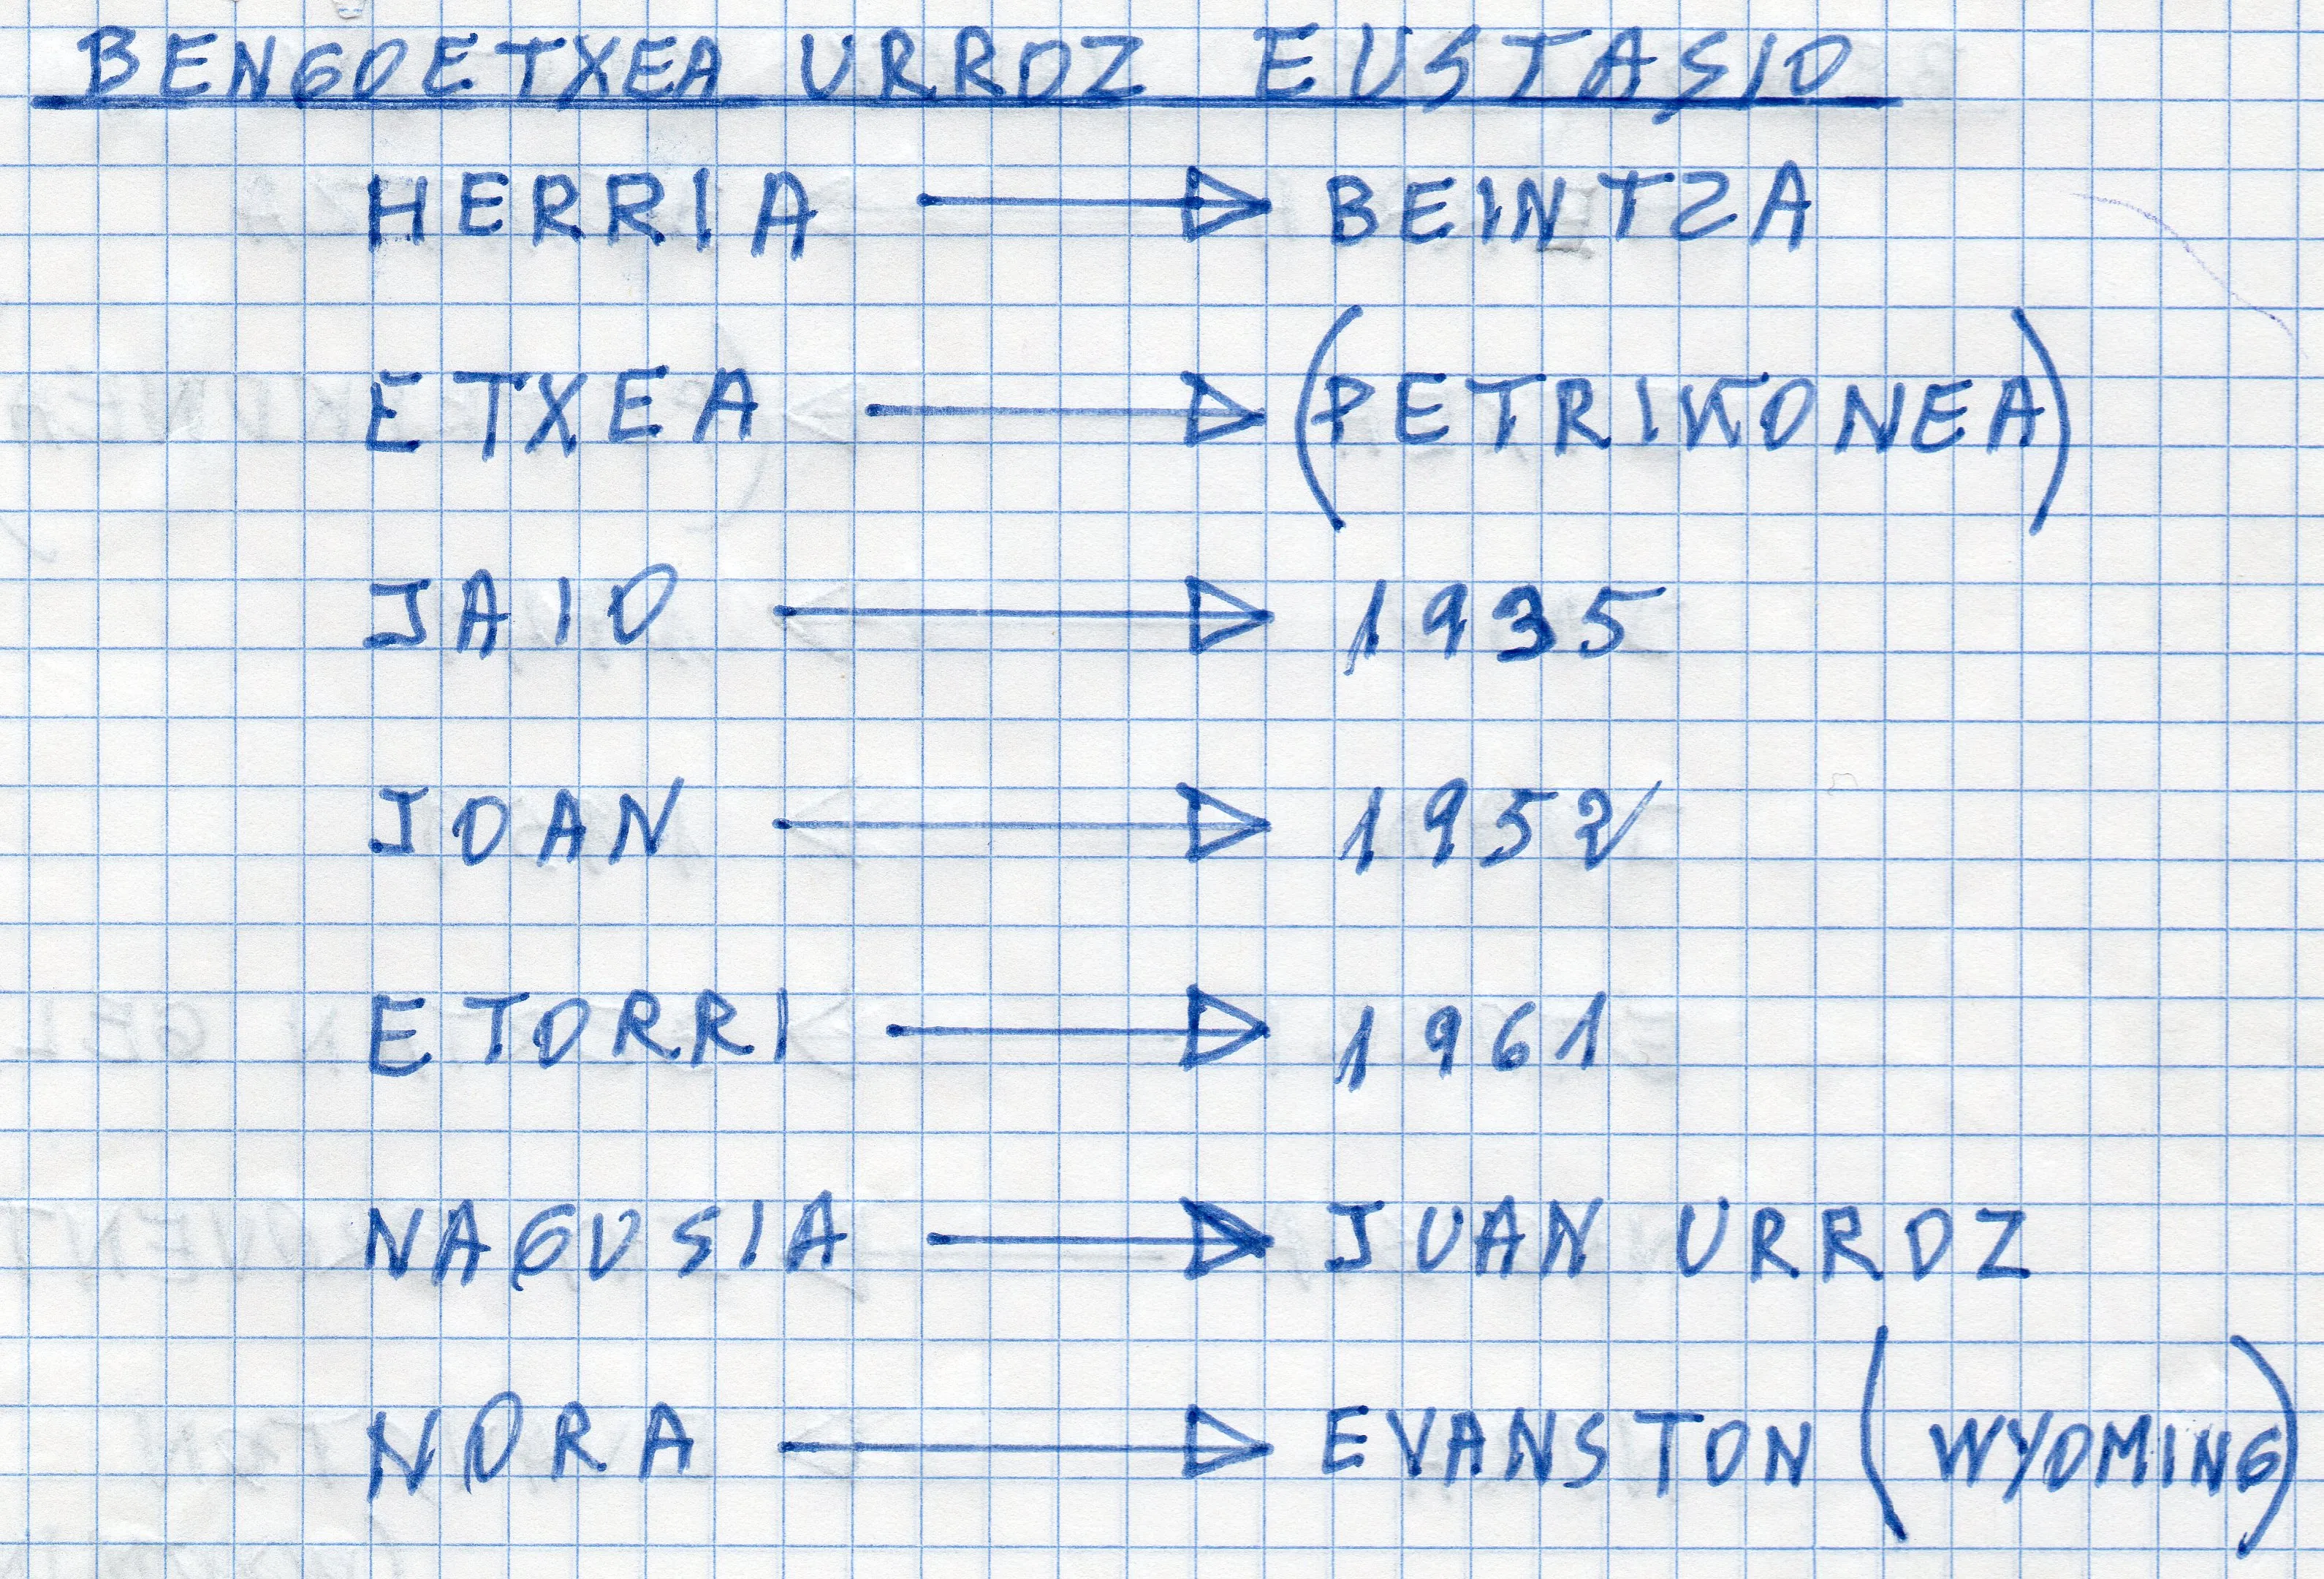 BENGOETXEA URROZ EUSTASIO
HERRIA → BEINTZA
ETXEA → (PETRIKONEA)
JAIO → 1935
JOAN → 1952
ETORRI → 1961
NAGUSIA → JUAN URROZ
NORA → EVANSTON (WYOMING)